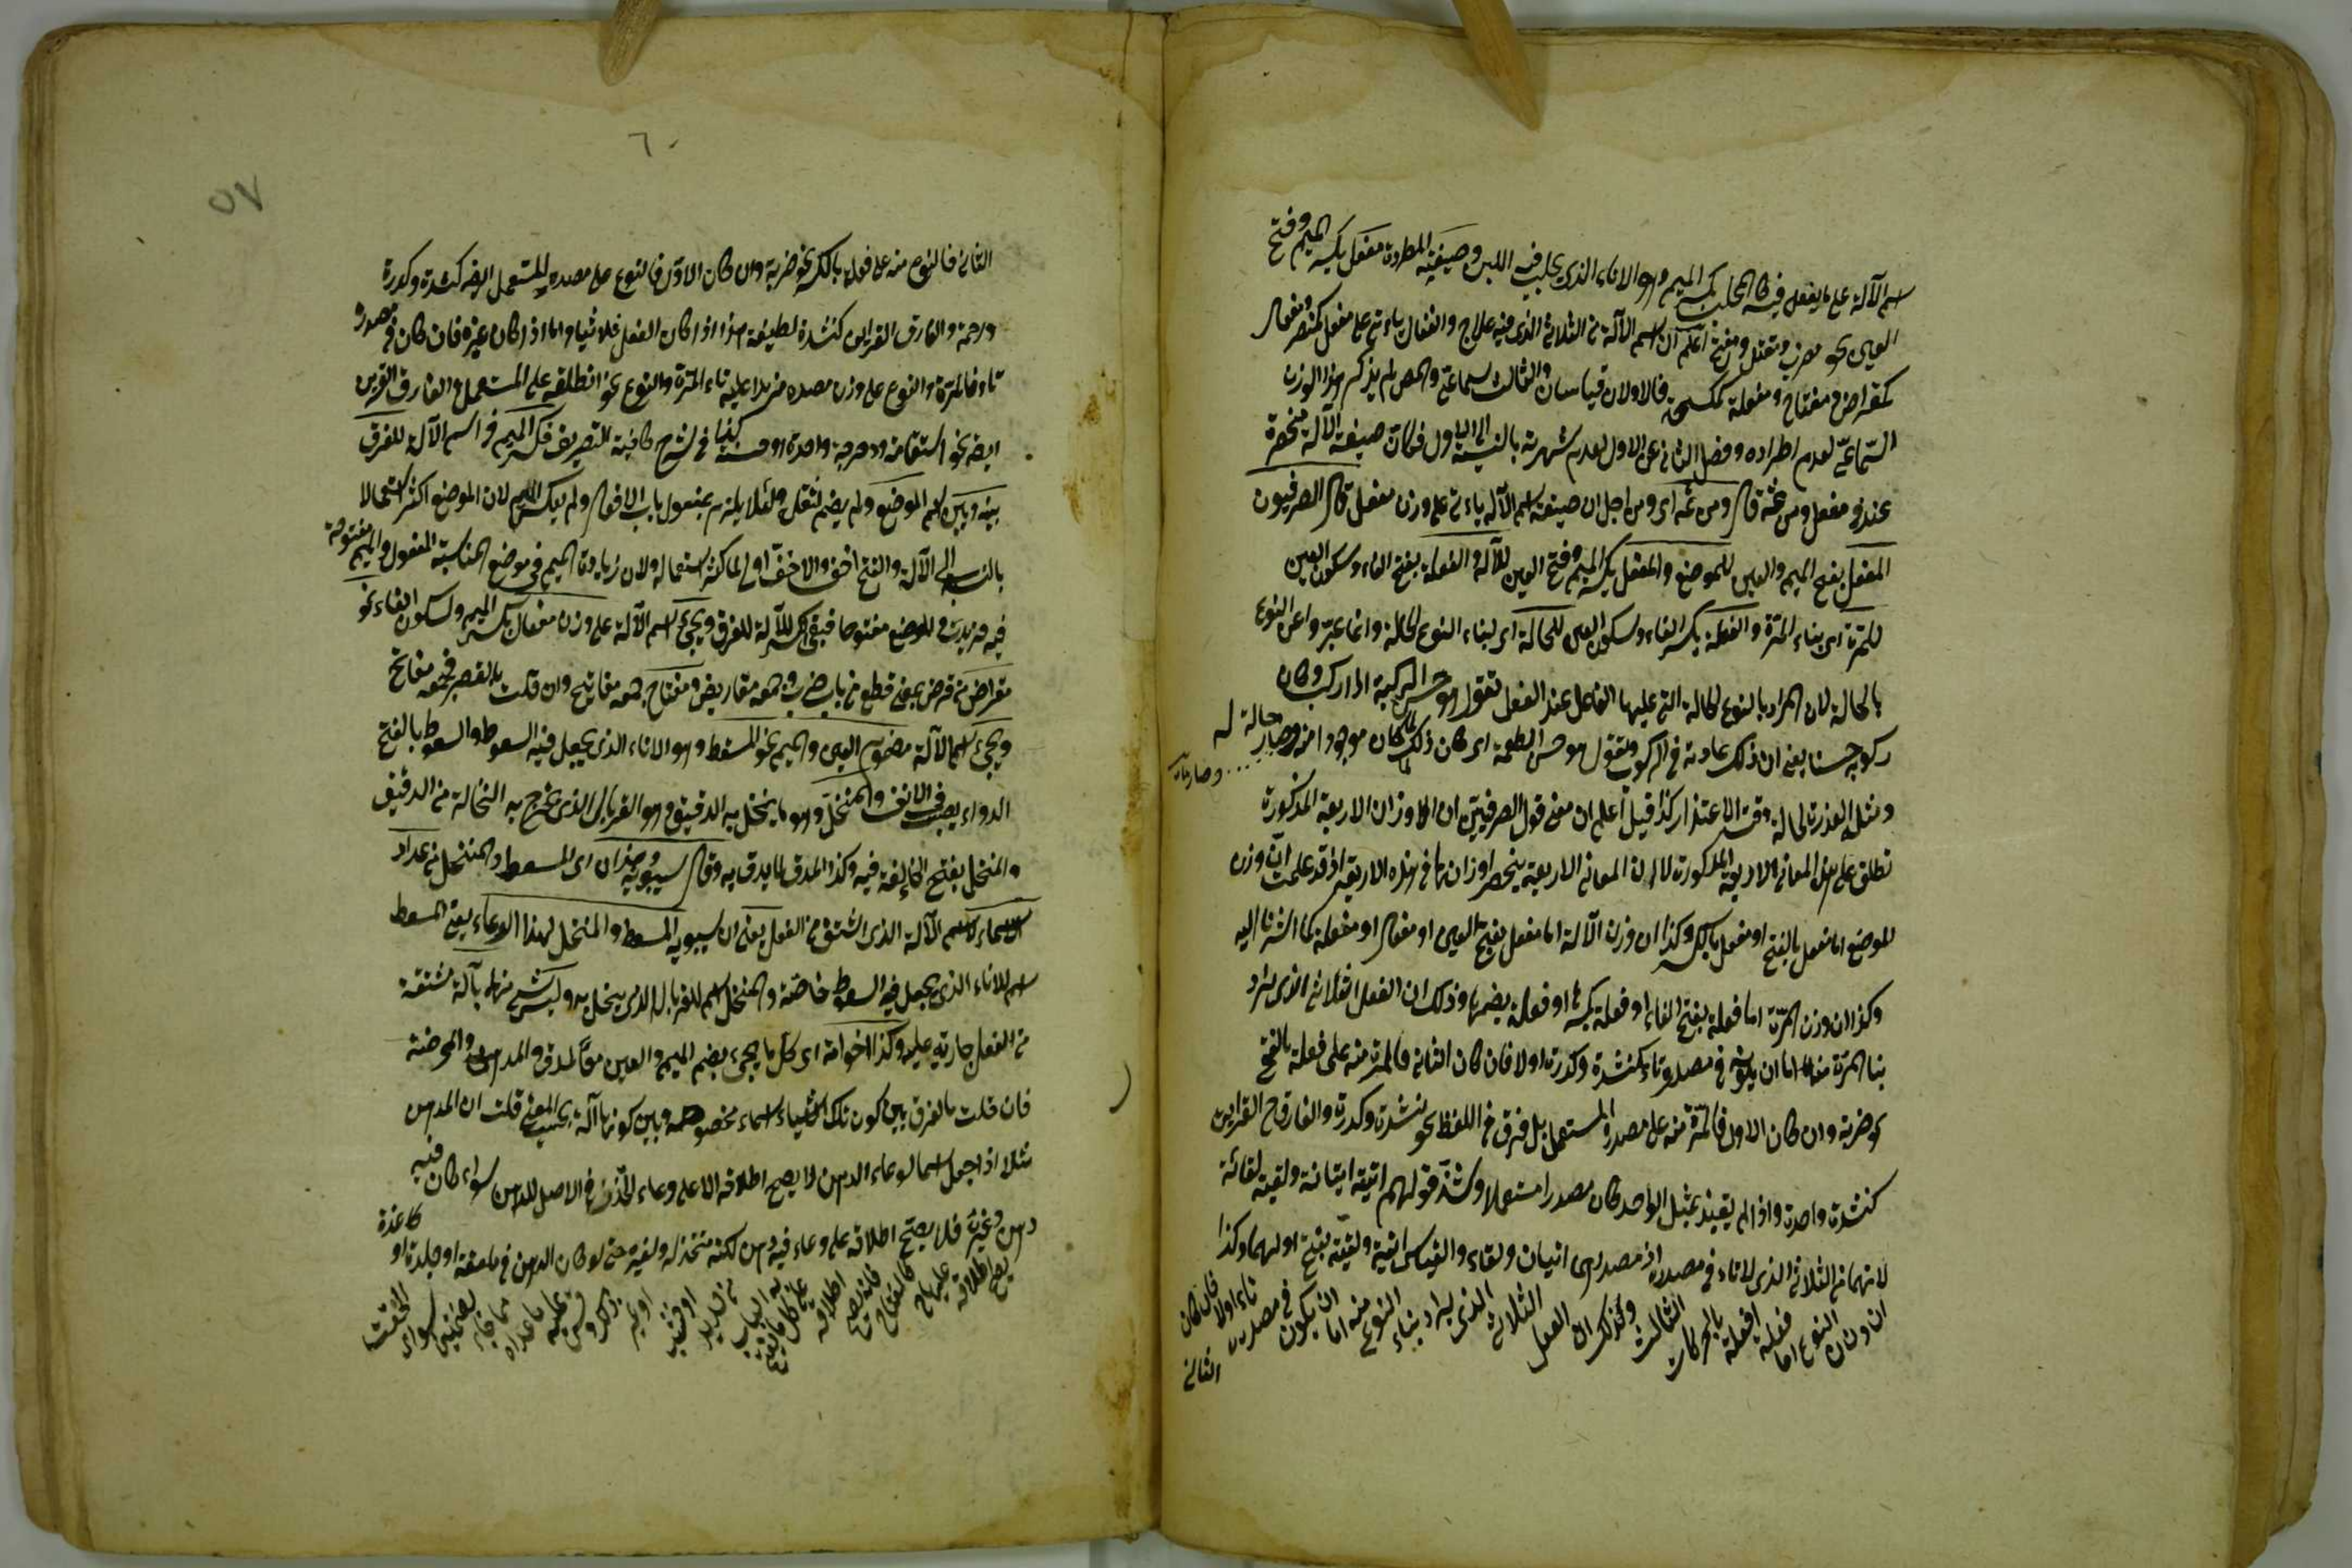 اسم الآلة على ما يفعل فيه كالمحلب بكسر الميم وهو الاناء الذى يحلب فيه اللبن وصيغته المطردة مفعل بكسر الميم وفتح
العين نحو مضرب ومقتل ومفتح اعلم ان اسم الآلة من الثلاثى الذى فيه علاج وانفعال ياءتى على مفعل كمنصر ومفعال
كمقراض ومفتاح ومفعلة ككسحة فالاولان قياسان والثالث سماعى والمص لم يذكر هذا الوزن
السماعى لعدم اطراده وفصل الثانى عن الاول لعدم شهرته بالنسبة الى الاول فكان صيغة الآلة منحصرة
عنده مفعل ومن ثمه قال ومن ثمه اى ومن اجل ان صيغة اسم الآلة ياءتى على وزن مفعل قال الصرفيون
المفعل بفتح الميم والعين للموضع والمفعل بكسر الميم وفتح العين للآلة والفعلة بفتح الفاء وسكون العين
للمرة اى بناء المرة والفعلة بكسر الفاء وسكون العين للحالة اى لبناء النوع الحالة وانما عبروا عن النوع
بالحالة لان المراد بالنوع الحالة التى عليها الفاعل عند الفعل تقول هو حسن الركبة اذا ركب وكان
ركوبه حسنا يعنى ان ذلك عادته فى الركوب وتقول هو حسن الطعمة اى كان ذلك لما كان موجودا منه وصار حالة له
ومثله العذرة لحالة وقت الاعتذار كذا قيل اعلم ان معنى قول الصرفيين ان الاوزان الاربعة المذكورة
تطلق على هذه المعانى الاربعة المذكورة لا ان المعانى الاربعة ينحصر اوزانها فى هذه الاربعة اذ قد علمت ان وزن
الموضع اما مفعل بالفتح او مفعل بالكسر وكذا ان وزن الآلة اما مفعل بفتح العين او مفعال او مفعلة كما اشرنا اليه
وكذا ان وزن المرة اما فعلة بفتح الفاء او فعلة بكسرها او فعلة بضمها وذلك ان الفعل الثلاثى الذى يراد
بنا المرة منه اما ان يكون فى مصدره تاء كنشدة وكدرة او لا فان كان الثانى فالمرة منه على فعلة بالفتح
نحو ضربة وان كان الاول فالمرة منه على مصدره المستعمل بل فرق فى اللفظ نحو نشدة وكدرة والفارق القراين
كنشدة واحدة واذا لم يقيد بمثل الواحد كان مصدرا مستعملا وشذ قولهم اتيته ايتانة ولقيته لقائة
لانهما من الثلاثى الذى لا تاء فى مصدره اذ مصدرهما اتيان ولقاء والقياس اتية ولقية بفتح اولهما وكذا
ان وزن النوع اما فعلة او فعلة بالحركات الثالث وكذلك ان الفعل الثلاثى الذى يراد بناء النوع منه اما ان يكون فى مصدره تاء او لا فان كان
الثانى
٦٠
٥٧
الثانى فالنوع منه على فعلة بالكسر نحو ضربة وان كان الاول فالنوع على مصدره المستعمل ايضا كنشدة وكدرة
ورحمة والفارق القراين كنشدة لطيفة هذا اذا كان الفعل ثلاثيا واما اذا كان غيره فان كان فى مصدره
تاء فالمرة والنوع على وزن مصدره مزيدا عليه تاء المرة والنوع نحو انطلاقة على المستعمل والفارق القراين
ايضا نحو استقامة ودحرجة واحدة او حسنة كذا فى شرح كافية التصريف فكسر الميم فى اسم الآلة للفرق
بينه وبين اسم الموضع ولم يضم لثقل ولئلا يلتبس بمفعول باب الافعال ولم يعكس الميم لان الموضع اكثر استعمالا
بالنسبة الى الآلة والفتح اخف والاخف اولى لما كثر استعماله ولان زيادة الميم فى موضع المناسبة المفعول والميم مفتوحة
فيه فزيدت فى الموضع مفتوحا فبقى الكسر للآلة للفرق ويجىء اسم الآلة على وزن مفعال بكسر الميم وسكون الفاء نحو
مقراض من قرض بمعنى قطع من باب ضرب وجمعه مقاريض ومفتاح جمعه مفاتيح وان قلت بالقصر فجمعه مفاتح
ويجىء اسم الآلة مضموم العين والميم نحو المسعط وهو الاناء الذى يجعل فيه السعوط والسعوط بالفتح
الدواء يصب فى الانف والمنخل وهو ما ينخل به الدقيق وهو الغربال الذى يخرج به النخالة من الدقيق
والمنخل بفتح الخاء لغة فيه وكذا المدق لما يدق به وقال سيبويه وهذان اى المسعط والمنخل من عداد
الاسماء اسم الآلة الذى اشتق من الفعل يعنى ان سيبويه المسعط والمنخل لهذا الوعاء يعنى المسعط
اسم للاناء الذى يجعل فيه السعوط خاصة والمنخل اسم للغربال الذى ينخل به وليس شىء منهما بآلة مشتقة
من الفعل جارية عليه وكذا اخواته اى كل ما يجىء بضم الميم والعين من المدق والمدهن والمحرضة
فان قلت ما الفرق بين كون تلك الاشياء اسماء مخصوصة وبين كونها آلة بحسب المعنى قلت ان المدهن
مثلا اذا جعل اسما لوعاء الدهن لا يصح اطلاقه الا على وعاء اتخذ فى الاصل للدهن سواء كان فيه
دهن وغيره فلا يصح اطلاقه على وعاء فيه دهن لكنه متخذ له ولغيره حتى لو كان الدهن فى ملعقة او جلدة او كاغذة
يصح اطلاقه عليها كالمفتاح فانه يصح اطلاقه على كل ما يفتح به الباب من حديد او خشب او غيره ذكره وقس عليه ما عداه مما جاء بضمتين سواى التحقت